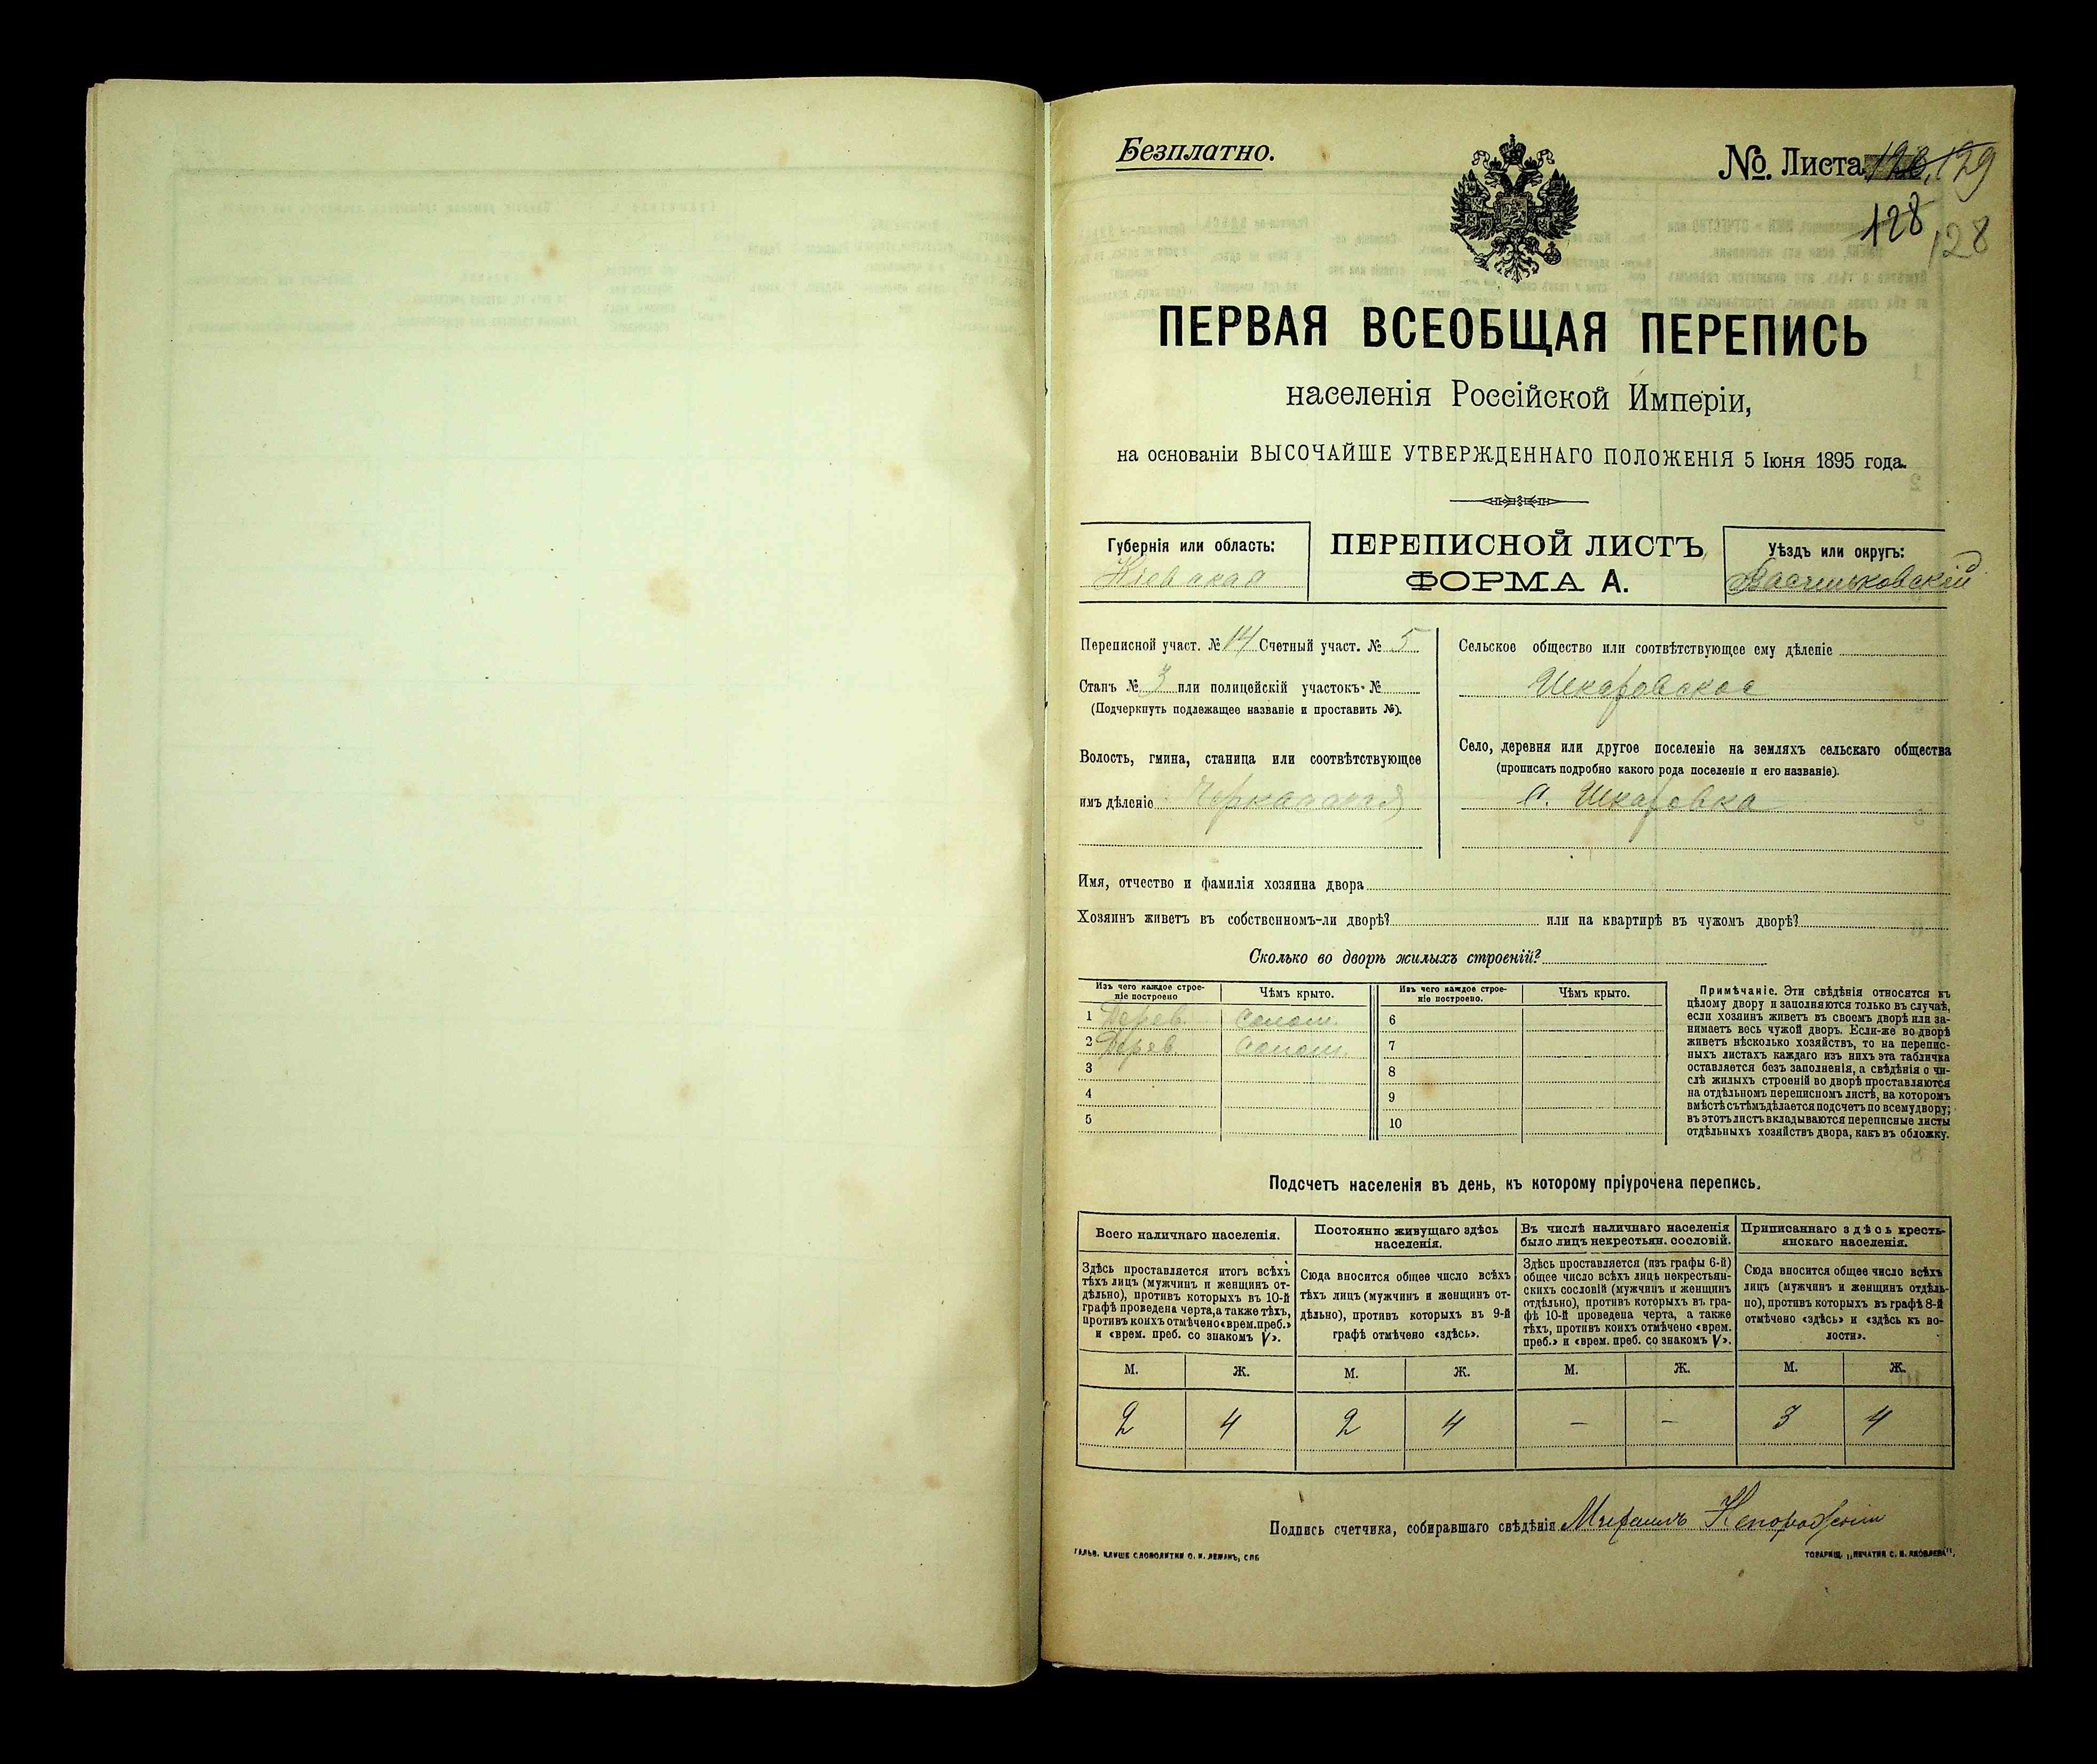 Безплатно.
№. Листа 129
128 128
ПЕРВАЯ ВСЕОБЩАЯ ПЕРЕПИСЬ
населенія Россійской Имперіи,
на основаніи ВЫСОЧАЙШЕ УТВЕРЖДЕННАГО ПОЛОЖЕНІЯ 5 Іюня 1895 года.
Губернія или область:
Кіевская
ПЕРЕПИСНОЙ ЛИСТЪ
ФОРМА А.
Уѣздъ или округъ:
Васильковскій
Переписной участ. № 14 Счетный участ. № 5
Станъ № 3 или полицейскій участокъ №
(Подчеркнуть подлежащее названіе и проставить №).
Волость, гмина, станица или соотвѣтствующее
имъ дѣленіе Черкасская
Сельское общество или соотвѣтствующее ему дѣленіе
Шкаровское
Село, деревня или другое поселеніе на земляхъ сельскаго общества
(прописать подробно какого рода поселеніе и его названіе).
с. Шкаровка
Имя, отчество и фамилія хозяина двора
Хозяинъ живетъ въ собственномъ-ли дворѣ? или на квартирѣ въ чужомъ дворѣ?
Сколько во дворѣ жилыхъ строеній?
Изъ чего каждое строе-
ніе построено
Чѣмъ крыто.
Изъ чего каждое строе-
ніе построено.
Чѣмъ крыто.
1 Дерев. Солом. 6
2 Дерев Солом. 7
3 8
4 9
5 10
Примѣчаніе. Эти свѣдѣнія относятся къ
цѣлому двору и заполняются только въ случаѣ,
если хозяинъ живетъ въ своемъ дворѣ или за-
нимаетъ весь чужой дворъ. Если-же во дворѣ
живетъ нѣсколько хозяйствъ, то на перепис-
ныхъ листахъ каждаго изъ нихъ эта табличка
оставляется безъ заполненія, а свѣдѣнія о чи-
слѣ жилыхъ строеній во дворѣ проставляются
на отдѣльномъ переписномъ листѣ, на которомъ
вмѣстѣ съ тѣмъ дѣлается подсчетъ по всему двору;
въ этотъ листъ вкладываются переписные листы
отдѣльныхъ хозяйствъ двора, какъ въ обложку.
Подсчетъ населенія въ день, къ которому пріурочена перепись.
Всего наличнаго населенія.
Здѣсь проставляется итогъ всѣхъ
тѣхъ лицъ (мужчинъ и женщинъ от-
дѣльно), противъ которыхъ въ 10-й
графѣ проведена черта, а также тѣхъ,
противъ коихъ отмѣчено «врем. преб.»
и «врем. преб. со знакомъ V».
Постоянно живущаго здѣсь
населенія.
Сюда вносится общее число всѣхъ
тѣхъ лицъ (мужчинъ и женщинъ от-
дѣльно), противъ которыхъ въ 9-й
графѣ отмѣчено «здѣсь».
Въ числѣ наличнаго населенія
было лицъ некрестьян. сословій.
Здѣсь проставляется (изъ графы 6-й)
общее число всѣхъ лицъ некрестьян-
скихъ сословій (мужчинъ и женщинъ
отдѣльно), противъ которыхъ въ гра-
фѣ 10-й проведена черта, а также
тѣхъ, противъ коихъ отмѣчено «врем.
преб.» и «врем. преб. со знакомъ V».
Приписаннаго здѣсь кресть-
янскаго населенія.
Сюда вносится общее число всѣхъ
лицъ (мужчинъ и женщинъ отдѣль-
но), противъ которыхъ въ графѣ 8-й
отмѣчено «здѣсь» и «здѣсь къ во-
лости».
М. Ж. М. Ж. М. Ж. М. Ж.
2 4 2 4 – – 3 4
Подпись счетчика, собиравшаго свѣдѣнія Михаилъ
ГАЛЬВ. КЛИШЕ СЛОВОЛИТНИ О. И. ЛЕМАНЪ, СПБ
ТОВАРИЩ. „ПЕЧАТНЯ С. П. ЯКОВЛЕВА".